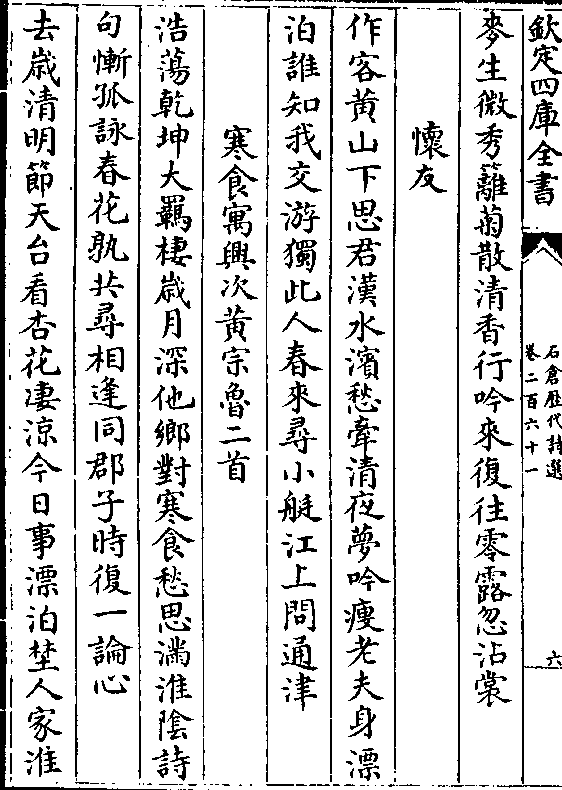 欽定四庫全書
石倉歷代詩選
卷二百六十一
六
麥生微秀籬菊散清香行吟來復往零露忽沾裳
懷友
作客黄山下思君漢水濱愁牽清夜夢吟瘦老夫身漂
泊誰知我交游獨此人春來尋小艇江上問通津
寒食寓興次黄宗魯二首
浩蕩乾坤大羈棲歲月深他鄉對寒食愁思滿淮陰詩
句慚孤詠春花孰共尋相逢同郡子時復一論心
去歲清明節天台看杏花凄涼今日事漂泊埜人家淮